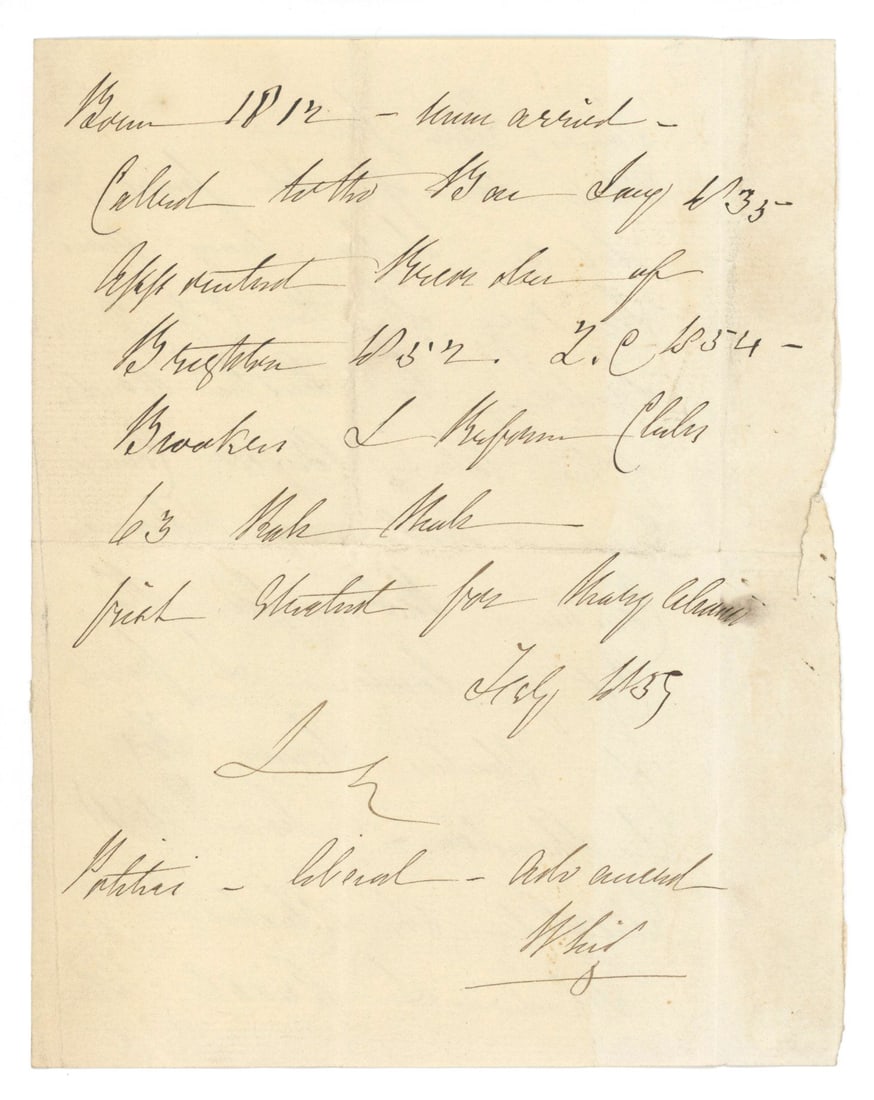 Born 1812 - unmarried -
Called to the Bar Jany 1835 -
Appointed Recorder of
Brighton 1852. Q.C 1854 -
Brookes & Reform Clubs
63 Park
first elected for Marylebone
Feby 1859
Politics - liberal - advanced
Whig